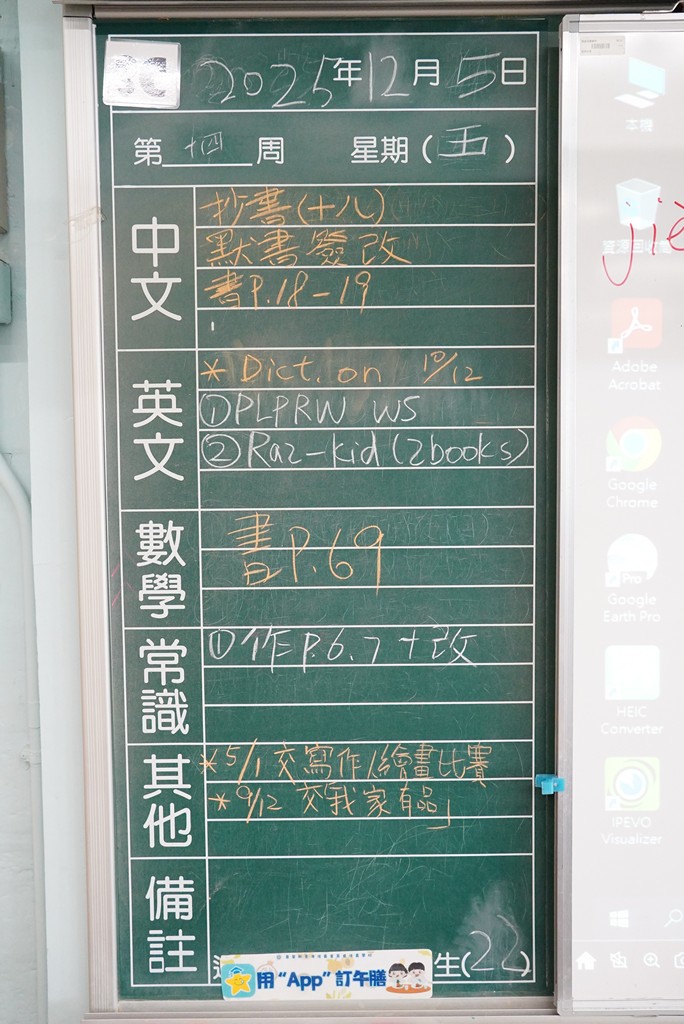 2025年12月5日
第十四周 星期(五)
中文
抄書(十八)
默書簽改
書P.18-19
英文
* Dict. on 10/12
①PLPRW WS
②Raz-kid(2books)
數學
書P.69
常識
①作P.6.7+改
其他
*5/1交寫作/繪畫比賽
*9/12 交「我家有品」
備註
用“App”訂午膳
生(22)
本機
資源回收筒
jie
Adobe Acrobat
Google Chrome
Pro
Google Earth Pro
HEIC Converter
IPEVO Visualizer